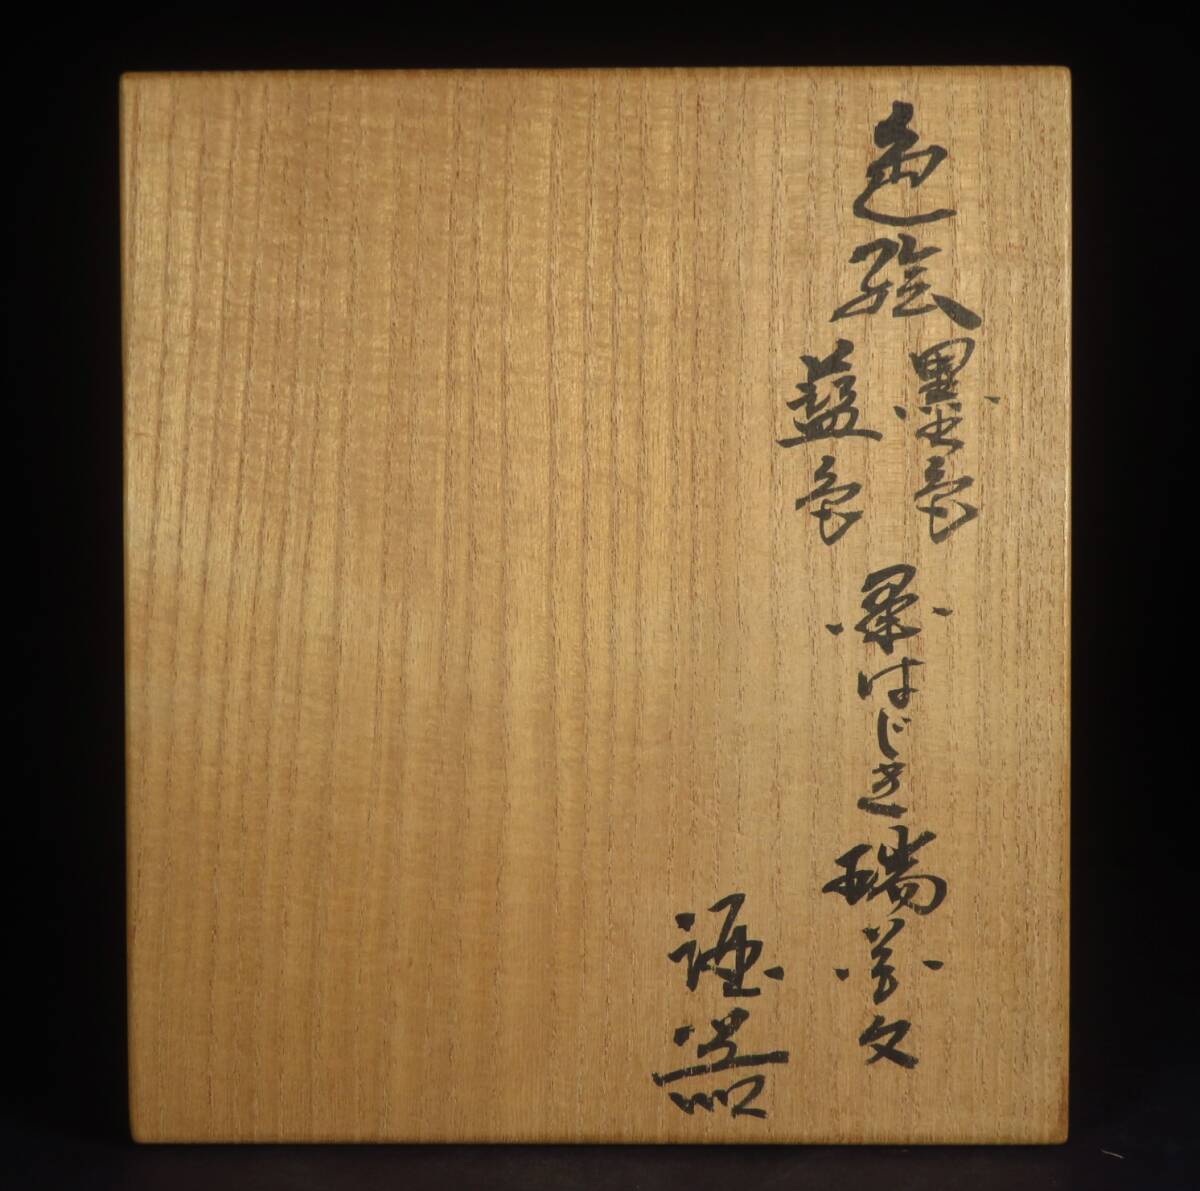 色絵
墨色
藍色
墨はじき瑞花文
酒器